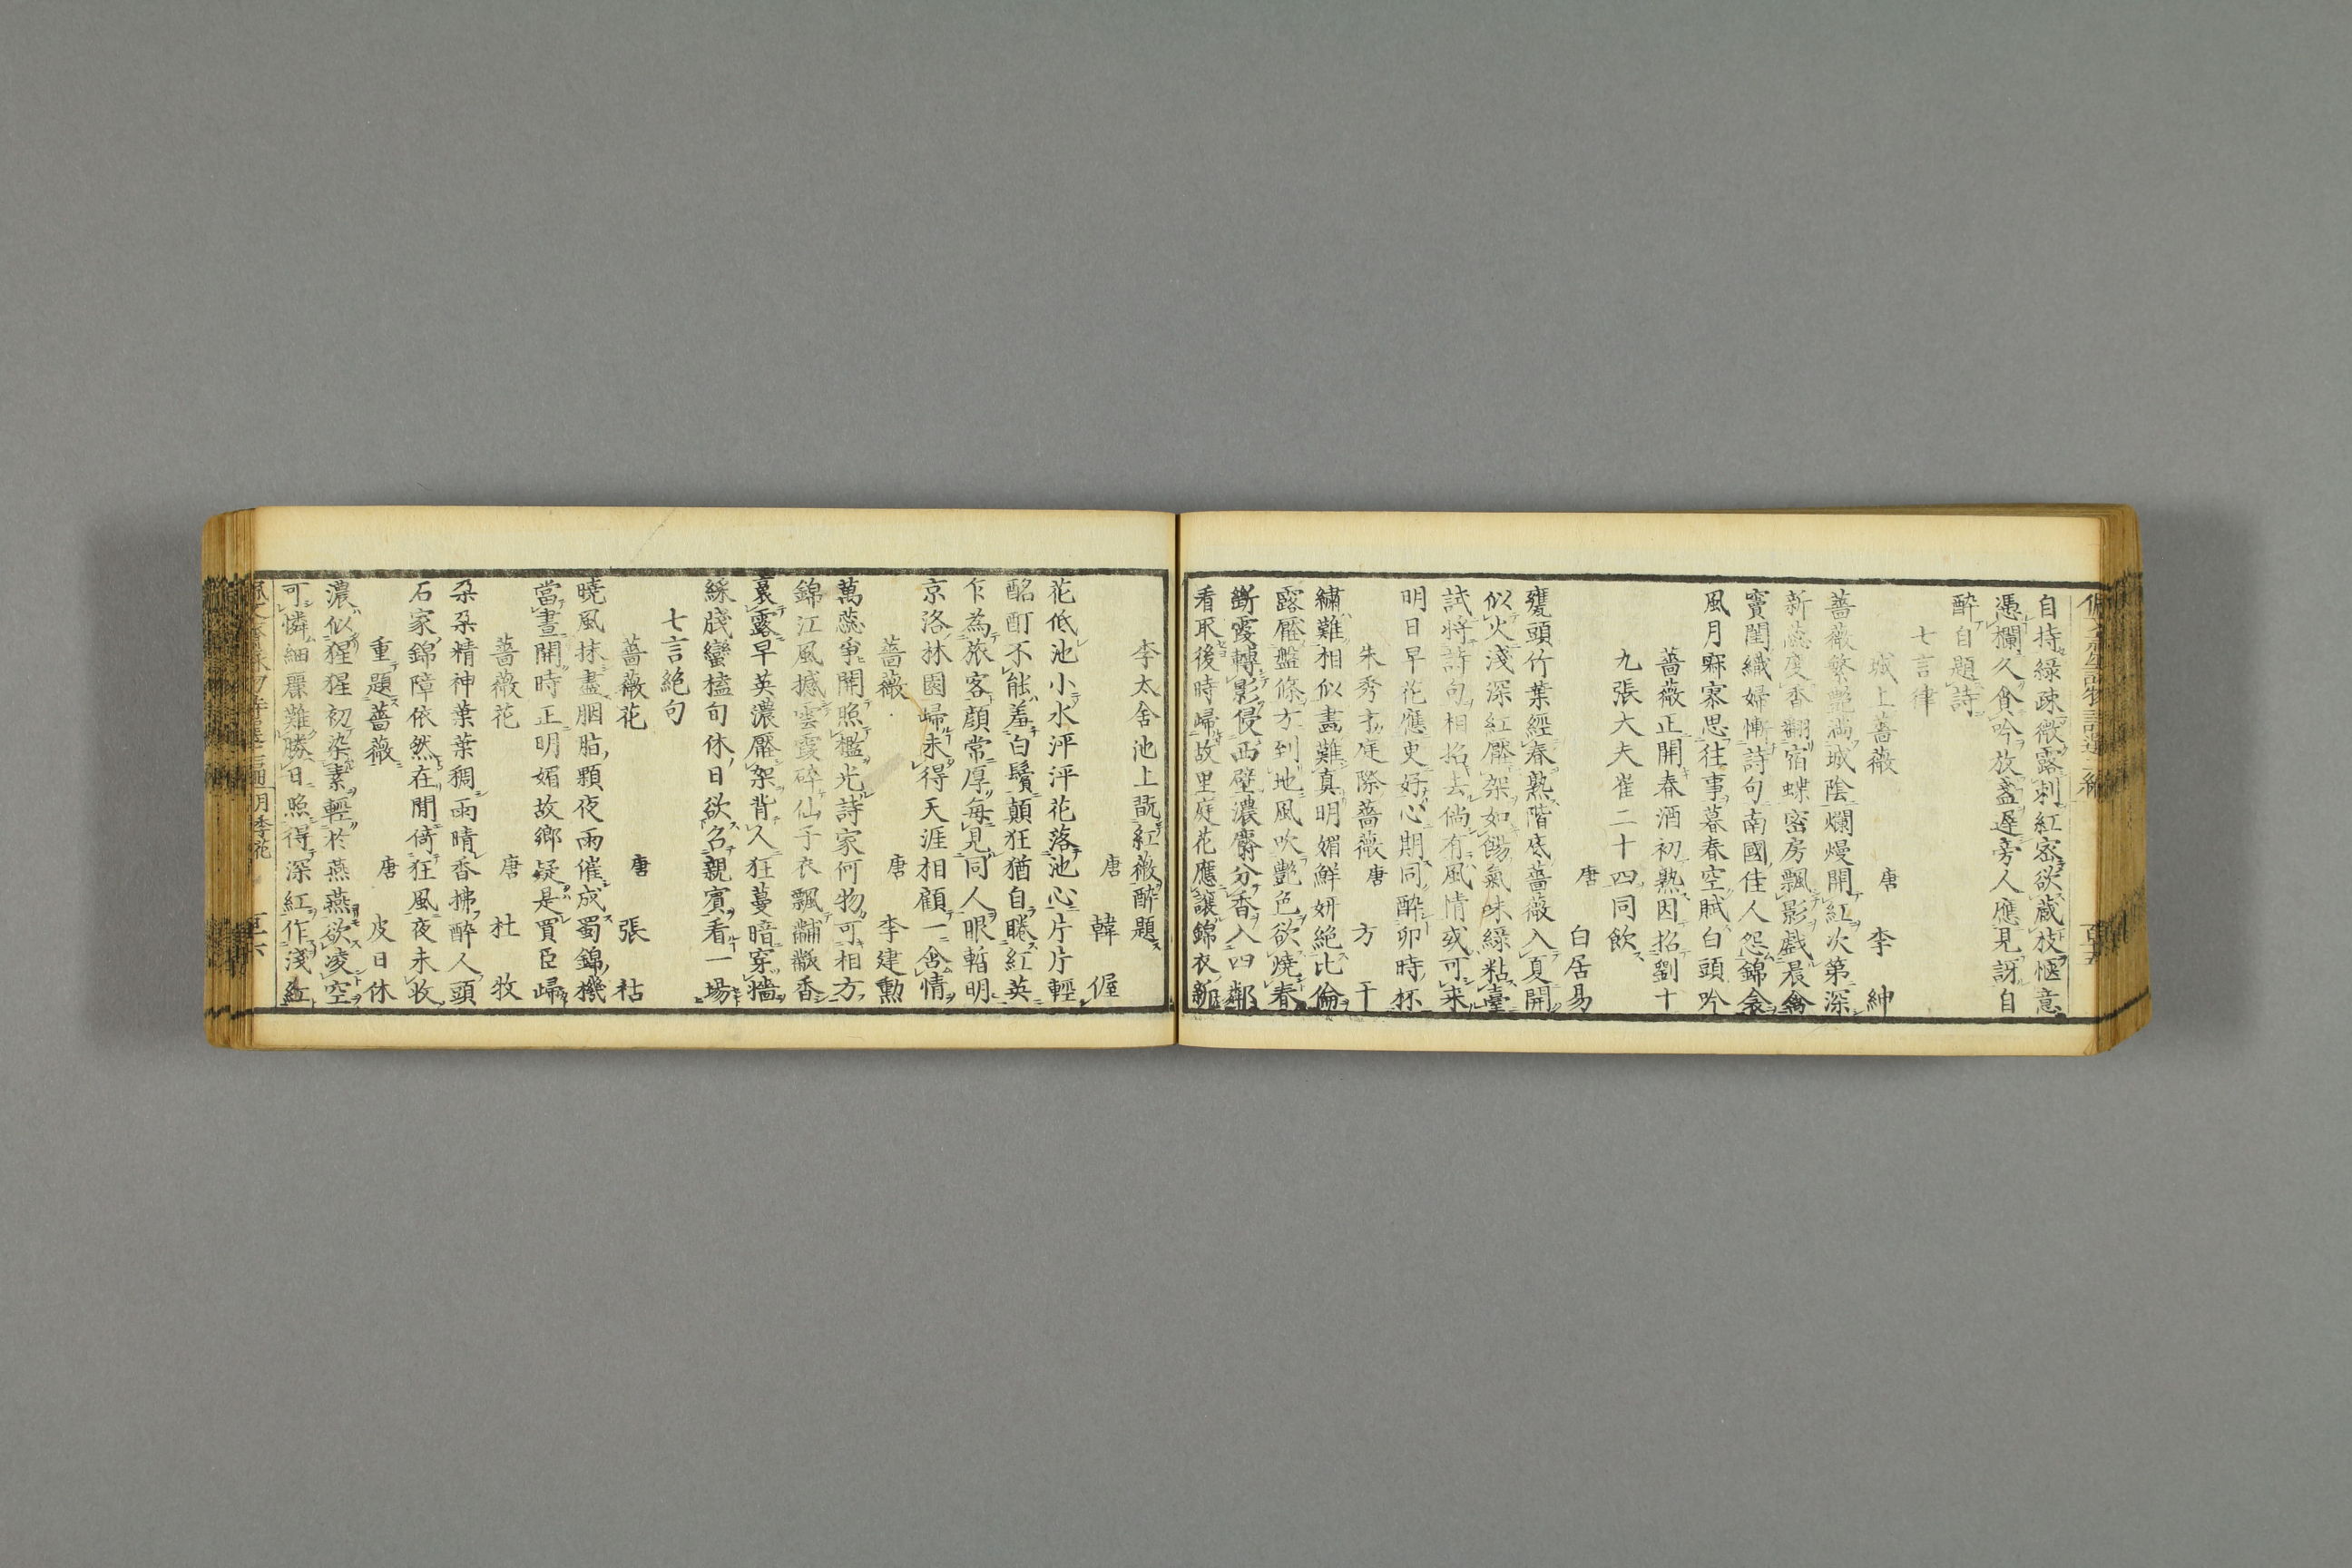 自持綠疎微露刺紅密欲蔵枝愜意
憑欄久貪吟放盞遅旁人應見訝自
醉自題詩
七言律
城上薔薇 唐 李紳
薔薇繁艶満城陰爛熳開紅次第深
新蕊度香翻宿蝶密房飄影戯晨禽
竇閨織婦慚詩句南國佳人怨錦衾
風月寂寥思往事暮春空賦白頭吟
薔薇正開春酒初熟因招劉十
九張大夫崔二十四同飲
唐 白居易
甕頭竹葉經春熟階底薔薇入夏開
似火淺深紅壓架如餳氣味緑粘臺
試将詩句相招去倘有風情或可来
明日早花應更好心期同醉卯時杯
朱秀才庭際薔薇 唐 方干
繡難相似畵難真明媚鮮妍絶比倫
露壓盤條方到地風吹艶色欲燒春
断霞轉影侵西壁濃麝分香入四鄰
看取後時歸故里庭花應讓錦衣新
李太舍池上翫紅薇醉題
唐 韓偓
花低池小水泙泙花落池心片片輕
酩酊不能羞白鬢顛狂猶自睠紅英
乍為旅客顔常厚毎見同人眼暫明
京洛林園歸未得天涯相顧一含情
薔薇 唐 李建勳
萬蕊争開照檻光詩家何物可相方
錦江風撼雲霞碎仙子衣飄黼黻香
裛露早英濃壓架背人狂蔓暗穿墻
綵牋蠻榼旬休日欲召親賓看一場
七言絶句
薔薇花 唐 張祜
曉風抹盡胭脂顆夜雨催成蜀錦機
當晝開時正明媚故鄉疑是買臣歸
薔薇花 唐 杜牧
朶朶精神葉葉稠雨晴香拂醉人頭
石家錦障依然在閒倚狂風夜未收
重題薔薇 唐 皮日休
濃似猩猩初染素輕於燕燕欲凌空
可憐細麗難勝日照得深紅作淺紅
月季花